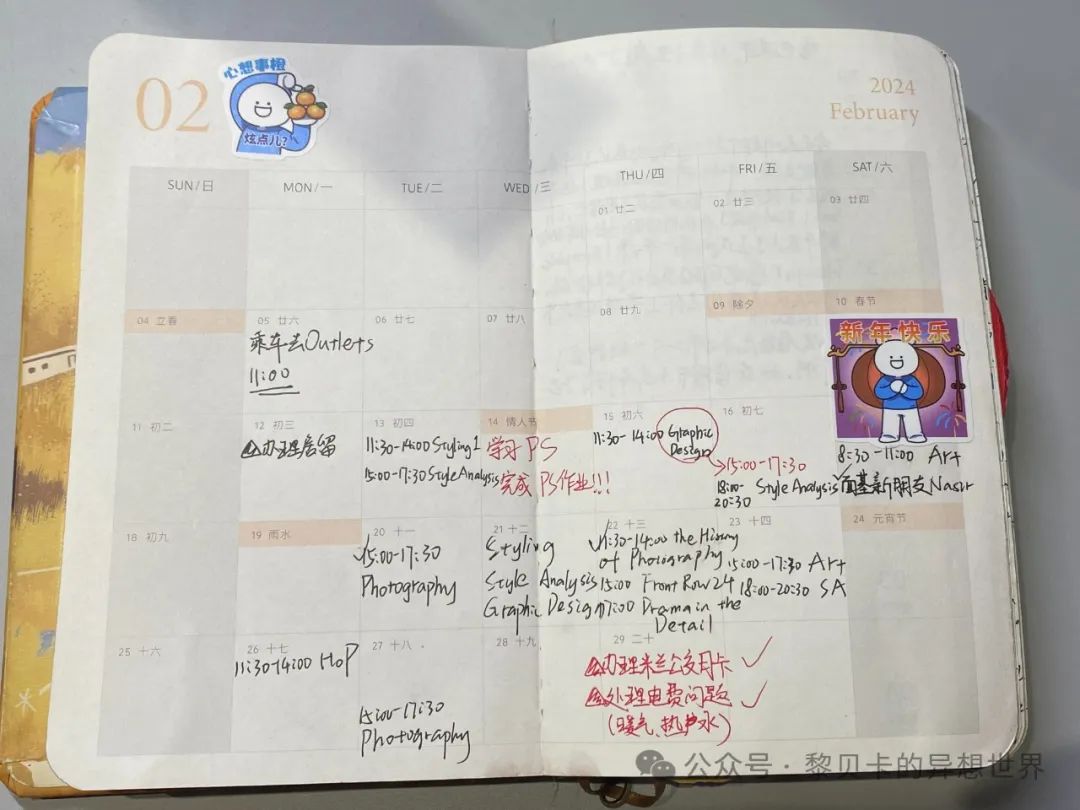 02
心想事橙
炫点儿?
2024
February
SUN/日
MON/一
TUE/二
WED/三
THU/四
FRI/五
SAT/六
01 廿二
02 廿三
03 廿四
04 立春
05 廿六
乘车去Outlets
11:00
06 廿七
07 廿八
08 廿九
09 除夕
10 春节
新年快乐
11 初二
12 初三
办理居留
13 初四
11:30-14:00 Styling 1
15:00-17:30 Style Analysis
14 情人节
学习 PS
完成 PS作业!!!
15 初六
11:30-14:00 Graphic
Design
16 初七
15:00-17:30
18:00-
20:30
Style Analysis
8:30-11:00 Art
面基新朋友Nasir
18 初九
19 雨水
20 十一
15:00-17:30
Photography
21 十二
Styling
Style Analysis
Graphic Design
22 十三
11:30-14:00 the History
of Photography
15:00 Front Row 24
17:00 Drama in the
Detail
23 十四
15:00-17:30 Art
18:00-20:30 SA
24 元宵节
25 十六
26 十七
11:30-14:00 HoP
27 十八
15:00-17:30
Photography
28 十九
29 二十
办理米兰公交月卡
处理电费问题
(暖气、热炉水)
公众号·黎贝卡的异想世界